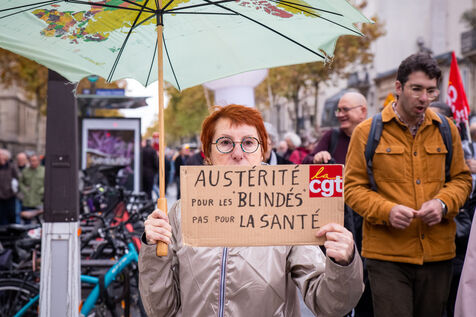 AUSTÉRITÉ
POUR LES BLINDÉS
PAS POUR LA SANTÉ
la
cgt